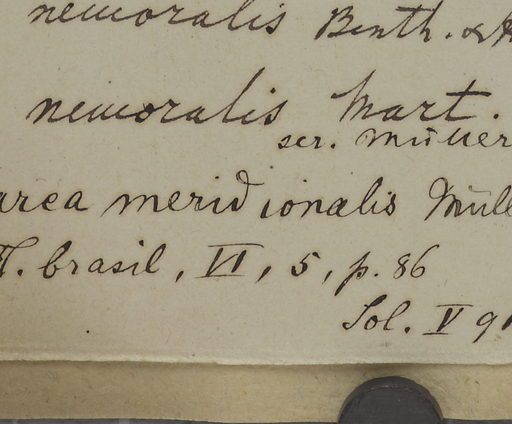 nemoralis Benth. &
nemoralis Mart.
scr. Müller
area meridionalis Müll
Fl. brasil, VI, 5, p. 86
Sol. V 9